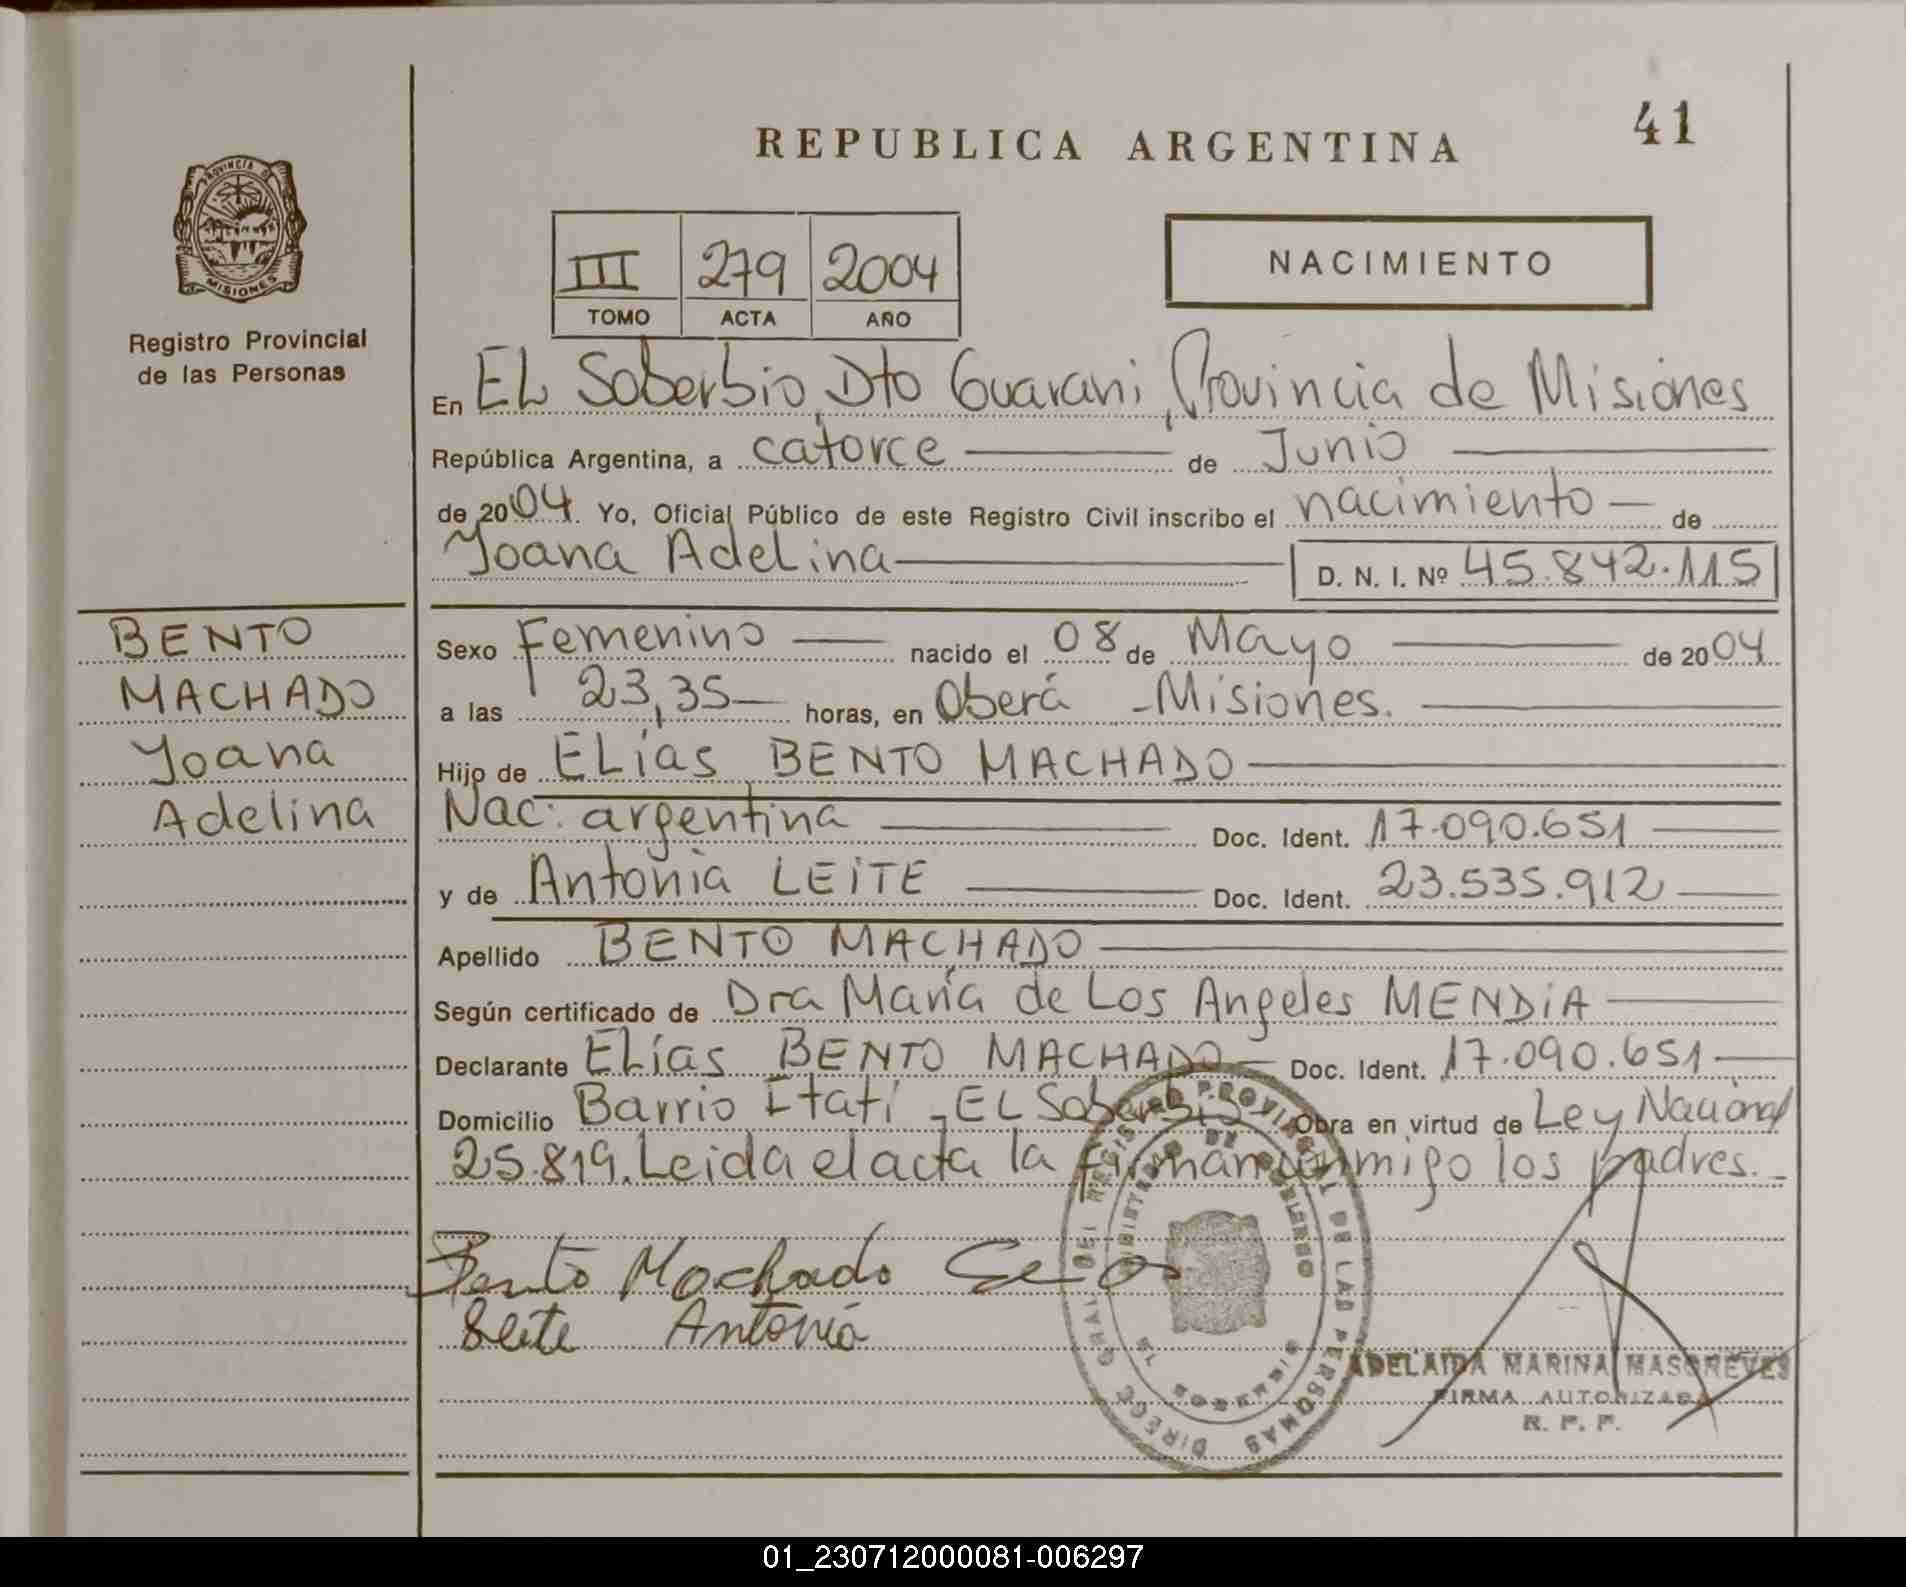 REPUBLICA ARGENTINA
41
PROVINCIA DE
MISIONES
Registro Provincial
de las Personas
III 279 2004
TOMO ACTA AÑO
NACIMIENTO
En EL Soberbio, Dto Guarani, Provincia de Misiones
República Argentina, a catorce de Junio
de 2004. Yo, Oficial Público de este Registro Civil inscribo el nacimiento de
Yoana Adelina D. N. I. Nº 45.842.115
BENTO
MACHADO
Yoana
Adelina
Sexo Femenino nacido el 08 de Mayo de 2004
a las 23,35 horas, en Oberá - Misiones.
Hijo de Elías BENTO MACHADO
Nac: argentina Doc. Ident. 17.090.651
y de Antonia LEITE Doc. Ident. 23.535.912
Apellido BENTO MACHADO
Según certificado de Dra María de Los Angeles MENDiA
Declarante Elías BENTO MACHADO Doc. Ident. 17.090.651
Domicilio Barrio Itatí - EL Soberbio Obra en virtud de Ley Nacional
25.819. Leida el acta la firman conmigo los padres.
Bento Machado
Leite Antonia
DIRECC GRAL DEL REGISTRO PROVINCIAL DE LAS PERSONAS
ADELAIDA MARINA MASGREVES
FIRMA AUTORIZADA
R. P. P.
01_230712000081-006297